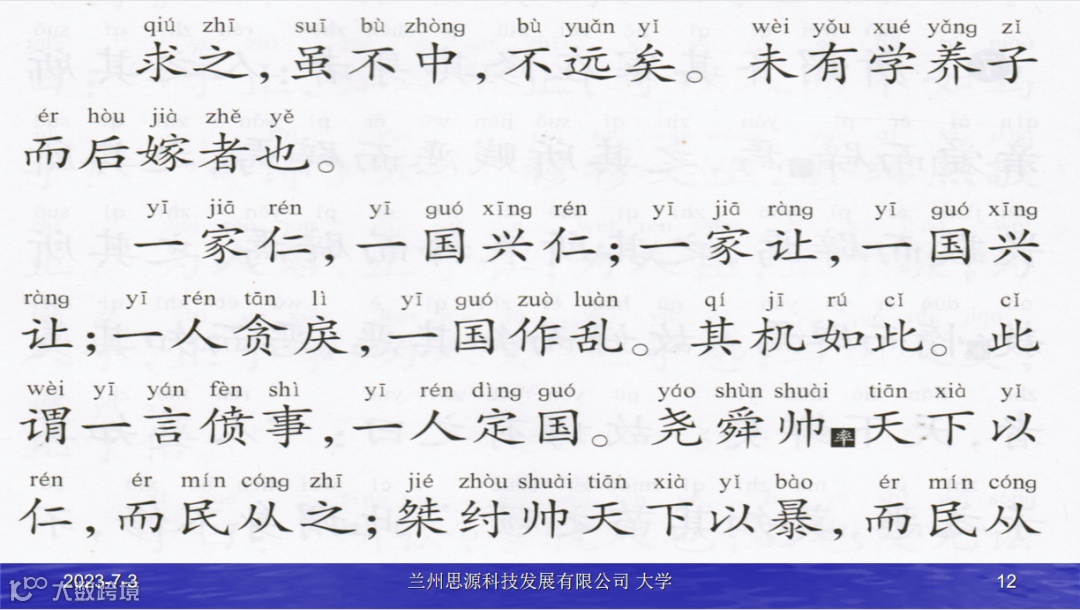 qiú zhī suī bù zhòng bù yuǎn yǐ wèi yǒu xué yǎng zǐ
求之，虽不中，不远矣。未有学养子
ér hòu jià zhě yě
而后嫁者也。
yī jiā rén yī guó xīng rén yī jiā ràng yī guó xīng
一家仁，一国兴仁；一家让，一国兴
ràng yī rén tān lì yī guó zuò luàn qí jī rú cǐ cǐ
让；一人贪戾，一国作乱。其机如此。此
wèi yī yán fèn shì yī rén dìng guó yáo shùn shuài tiān xià yǐ
谓一言偾事，一人定国。尧舜帅率天下以
rén ér mín cóng zhī jié zhòu shuài tiān xià yǐ bào ér mín cóng
仁，而民从之；桀纣帅天下以暴，而民从
2023-7-3 兰州思源科技发展有限公司 大学 12
大数跨境